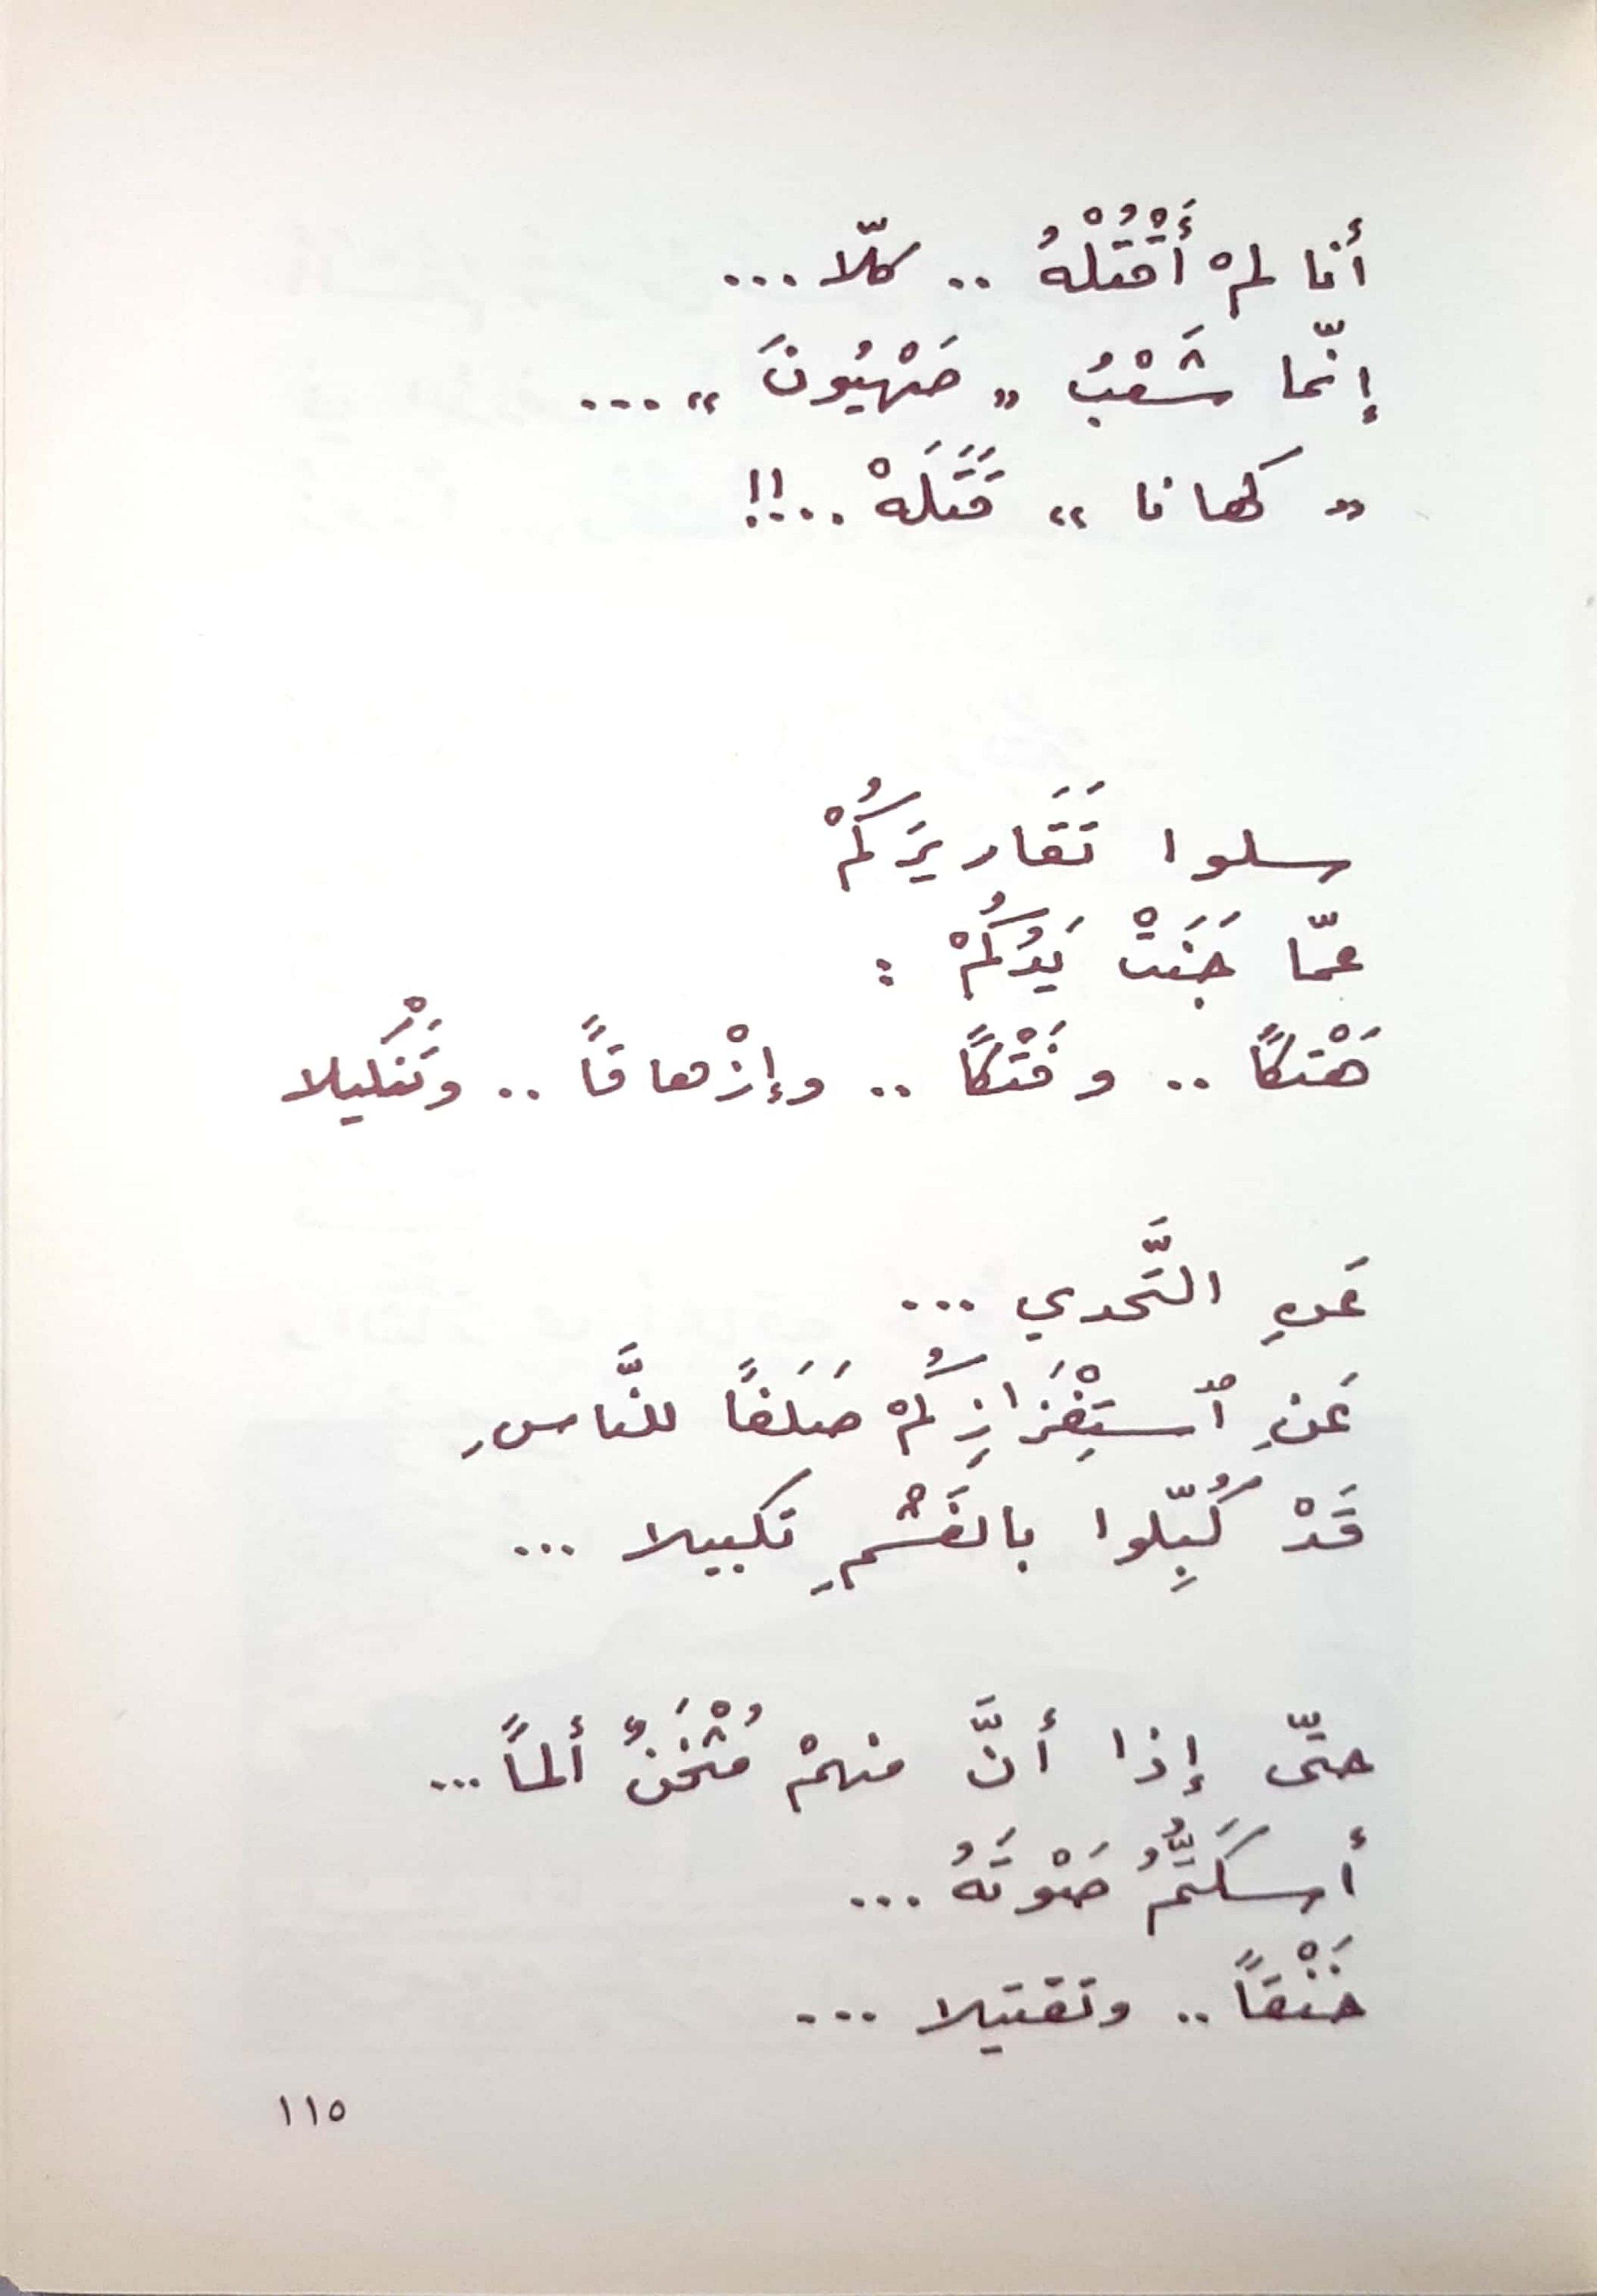 أنا لمْ أَقْتُلْهُ .. كلّا ...
إنّما شَعْبُ « صَهْيُونَ » ...
« كهانا » قَتَلَهْ ..!!
سلوا تَقَاريرَكُمْ
عمّا جَنَتْ يَدُكُمْ :
هَتْكاً .. وفَتْكاً .. وإزْهاقاً .. وتَنْكيلا
عَنِ التَّحدي ...
عَنِ ٱستِفْزَازِكُمْ صَلَفاً للنَّاسِ
قَدْ كُبِّلوا بالغَشْمِ تكبيلا ...
حتّى إذا أنَّ منهمْ مُثْخَنٌ ألماً ...
أسكَتُّمُ صَوْتَهُ ...
خَنْقاً .. وتقتيلا ...
١١٥